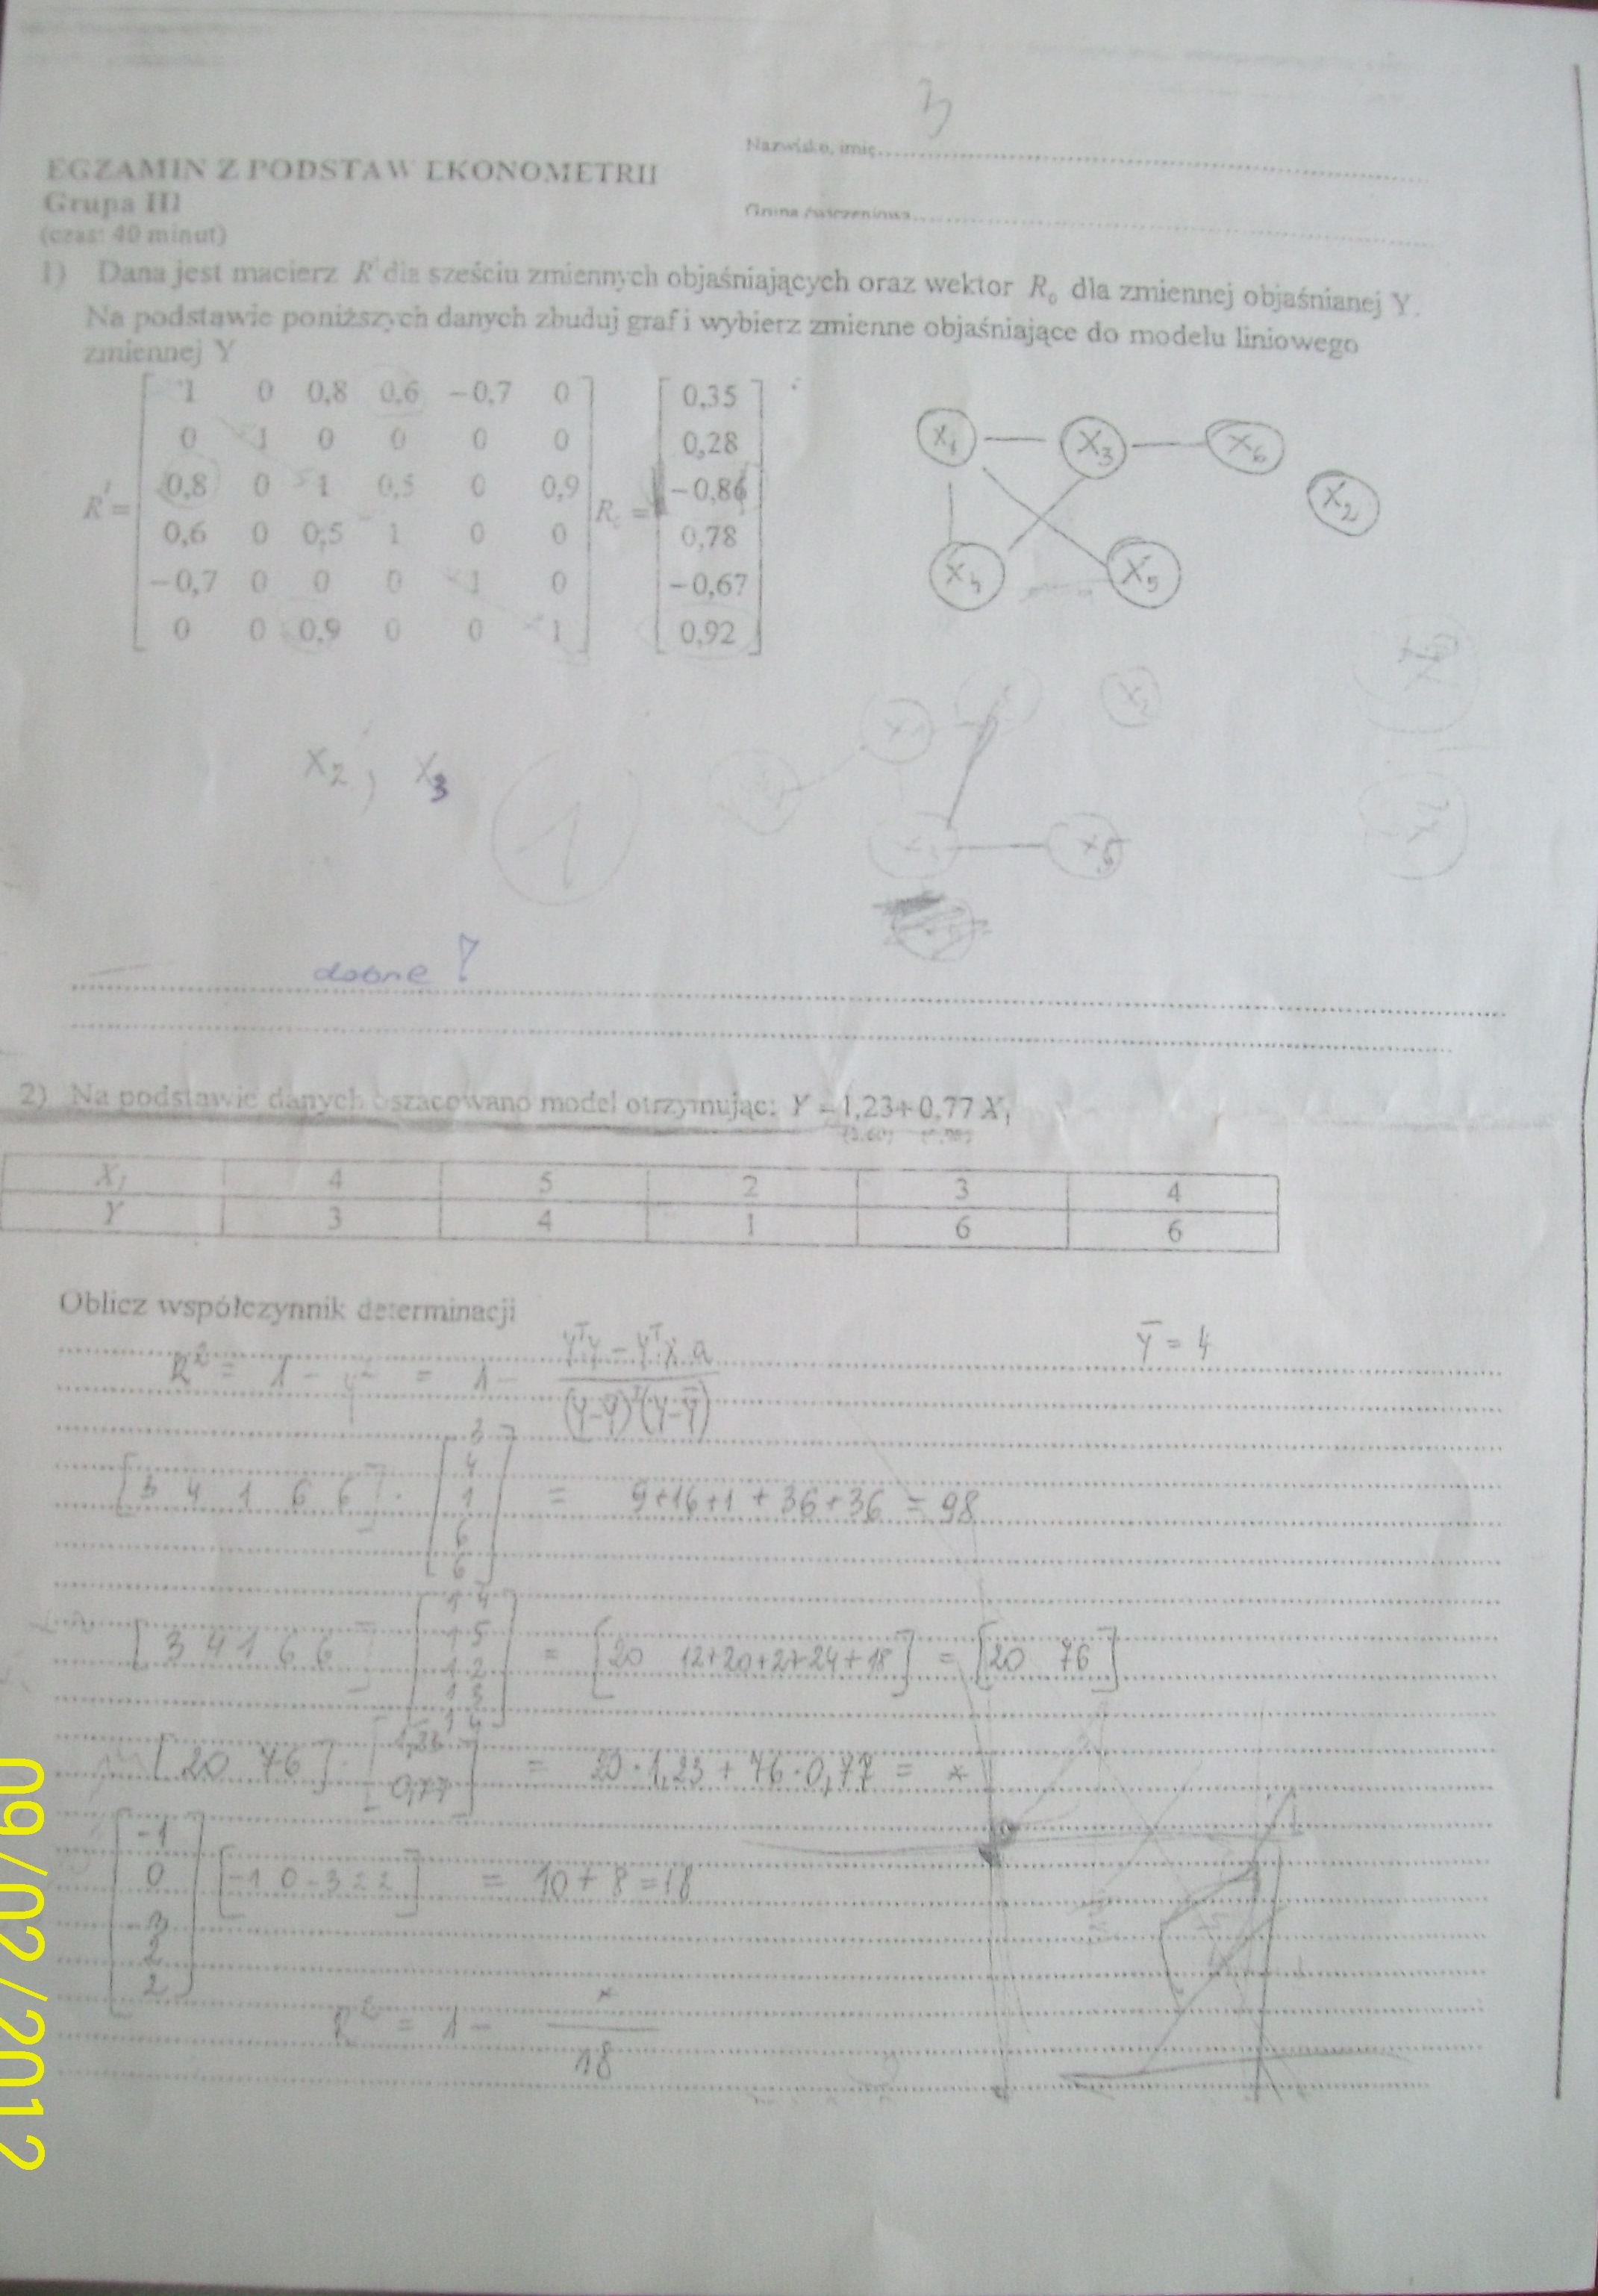 3
Nazwisko, imię
EGZAMIN Z PODSTAW EKONOMETRII
Grupa III
Grupa ćwiczeniowa
(czas: 40 minut)
1) Dana jest macierz R' dla sześciu zmiennych objaśniających oraz wektor R₀ dla zmiennej objaśnianej Y.
Na podstawie poniższych danych zbuduj graf i wybierz zmienne objaśniające do modelu liniowego
zmiennej Y
1 0 0,8 0,6 −0,7 0 0,35
0 1 0 0 0 0 0,28
R' = 0,8 0 1 0,5 0 0,9 R₀ = −0,86
0,6 0 0,5 1 0 0 0,78
−0,7 0 0 0 1 0 −0,67
0 0 0,9 0 0 1 0,92
X1 X3 X6
X2
X4 X5
X2
X2 ; X3
1
X5
dobre ?
2) Na podstawie danych oszacowano model otrzymując: Y = 1,23 + 0,77 X₁
X₁ 4 5 2 3 4
Y 3 4 1 6 6
Oblicz współczynnik determinacji
ȳ = 4
R² = 1 − φ² = 1 − (yᵀy − yᵀX a) / (y−ȳ)ᵀ(y−ȳ)
[3 4 1 6 6] · [3 4 1 6 6] = 9+16+1+36+36 = 98
[3 4 1 6 6] [1 4 1 5 1 2 1 3 1 4] = [20 12+20+2+24+18] = [20 76]
[20 76] · [1,23 0,77] = 20·1,23 + 76·0,77 = *
[-1 0 -3 2 2] [-1 0 -3 2 2] = 10 + 8 = 18
R² = 1 − * / 18
09/02/2012